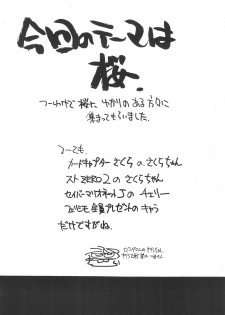 今回のテーマは
桜.
つーわけで桜にゆかりのある方々に
集まってもらいました.
つーても.
カードキャプターさくらのさくらちゃん
ストZERO2のさくらちゃん
セイバーマリオネットJのチェリー
全員プレゼントのキャラ
だけですがね.